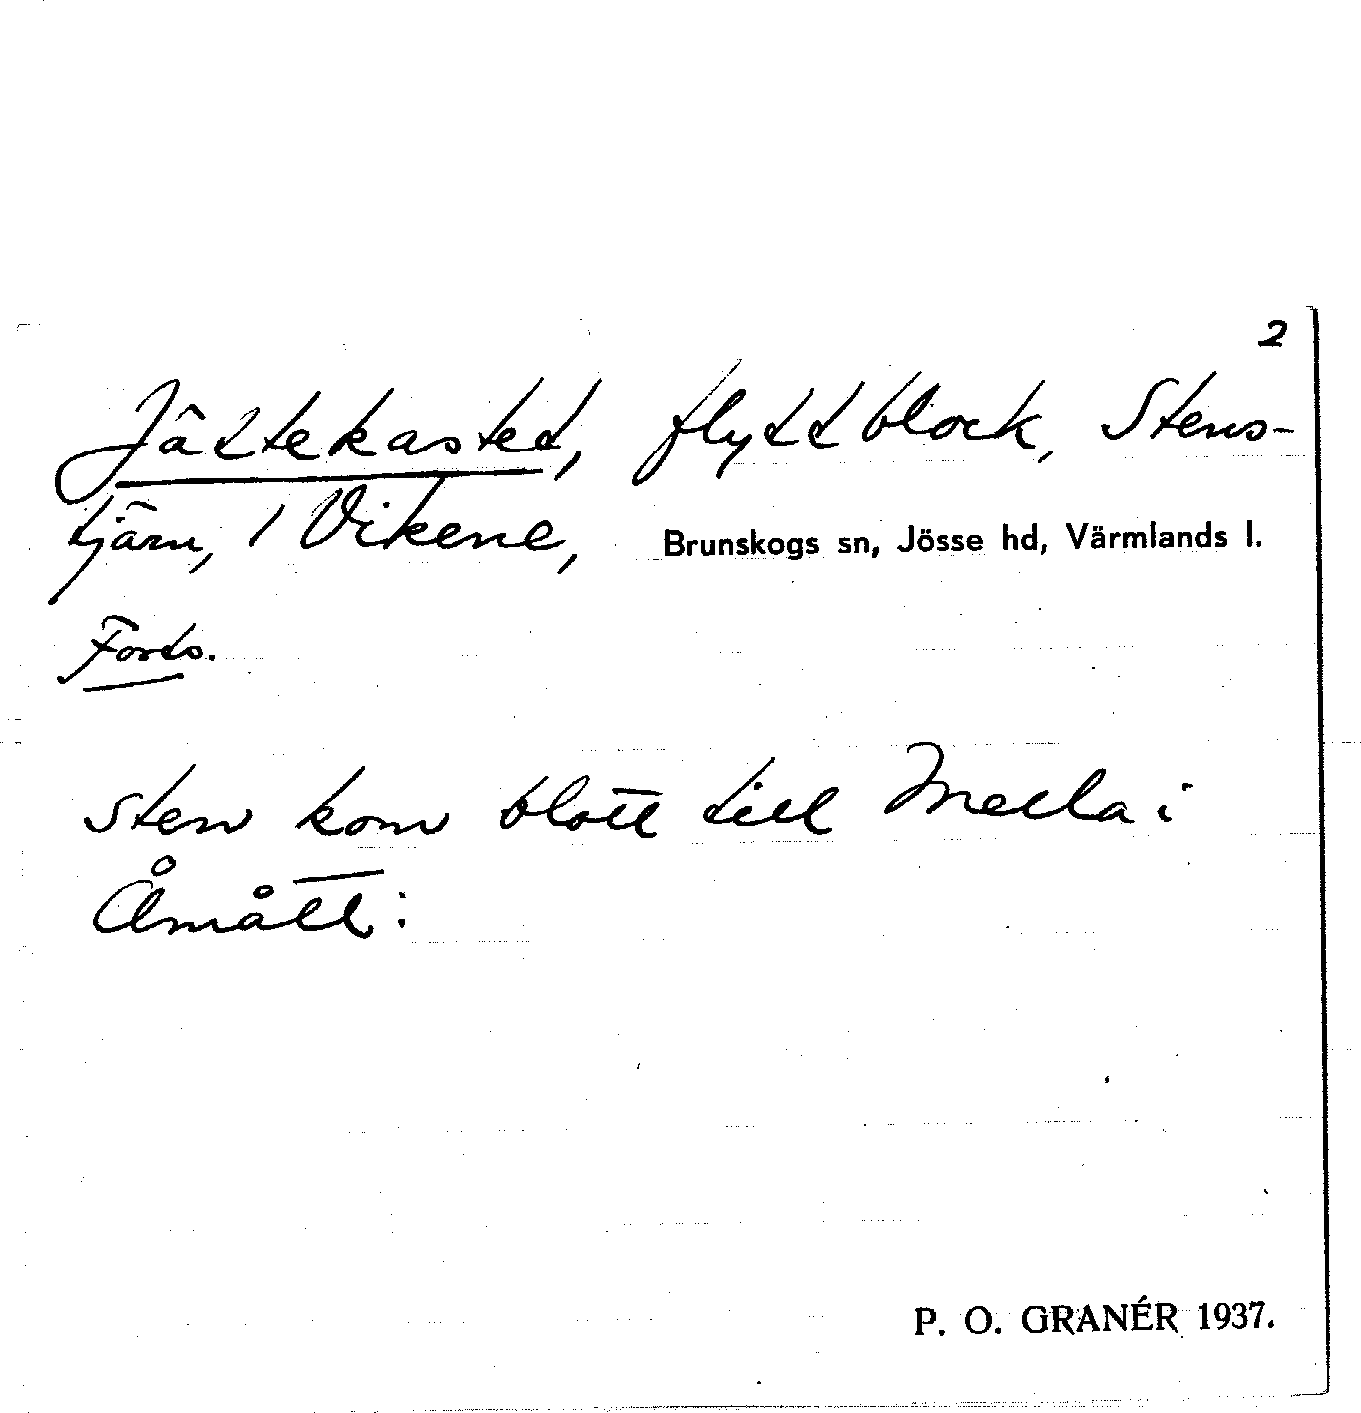 2
Jättekastet, flyttblock, Stens-
tjärn, 1 Vikene, Brunskogs sn, Jösse hd, Värmlands l.
Forts.
sten kom blott till Mella i
Åmått:
P. O. GRANÉR 1937.